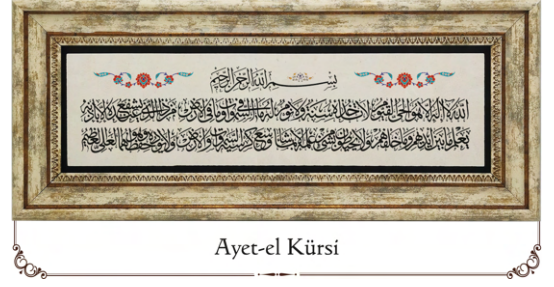 بسم الله الرحمن الرحيم
الله لا اله الا هو الحي القيوم لا تاخذه سنة ولا نوم له ما في السموات وما في الارض من ذا الذي يشفع عنده الا باذنه
يعلم ما بين ايديهم وما خلفهم ولا يحيطون بشيء من علمه الا بما شاء وسع كرسيه السموات والارض ولا يؤده حفظهما وهو العلي العظيم
Ayet-el Kürsi